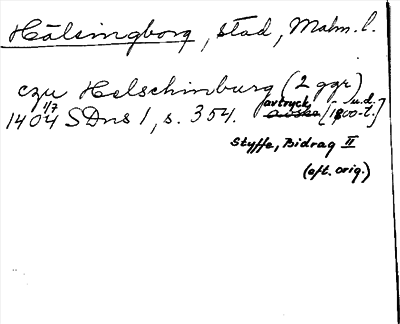 Hälsingborg, stad, Malm. l.
czu Helschinburg (2 ggr)
1404 1/7 SDns 1, s. 354. avtryck [u.d. 1800-t.]
Styffe, Bidrag II
(eft. orig.)